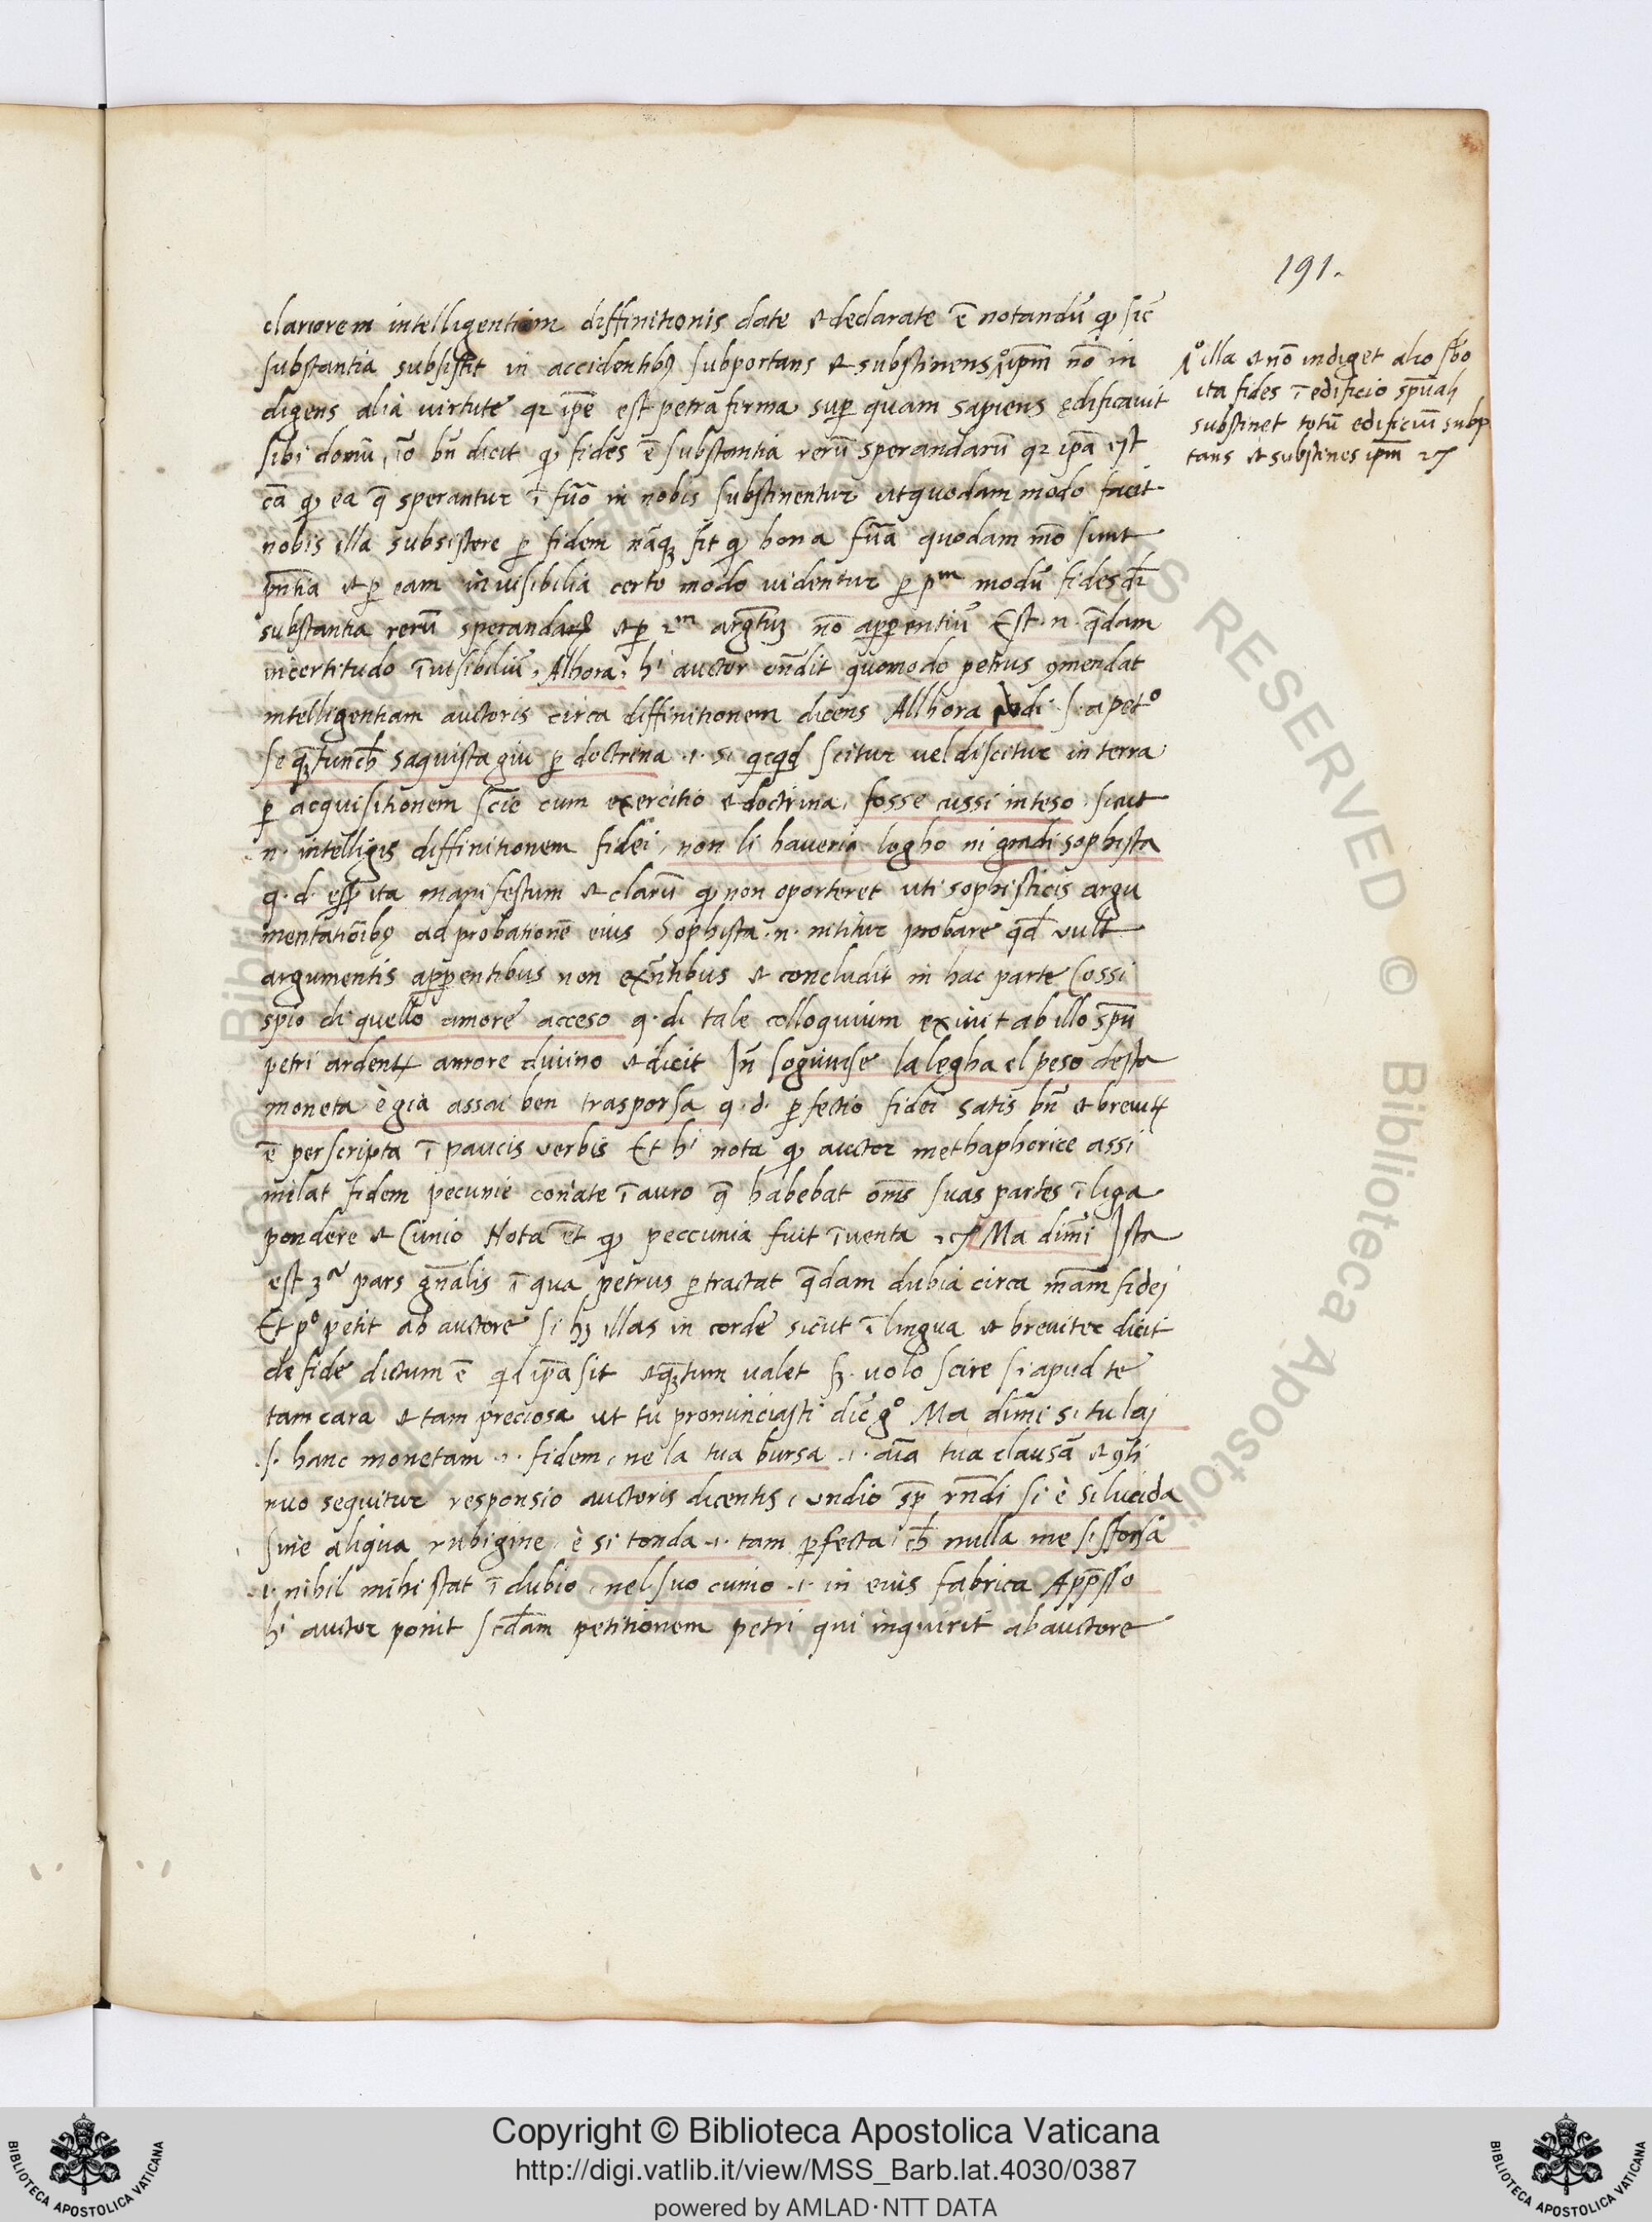 191.
clariorem intelligentiam diffinitionis date et declarate ē notandū qꝫ sic̄
substantia subsistit in accidentibꝰ subportans et substinens ip̄m nō in
digens alia virtute qꝛ ip̄e est petra firma suꝑ quam sapiens edificavit
sibi domū, iō bn̄ dicit qꝫ fides ē substantia rerū sperandarū qꝛ ip̄a est
cā qꝫ ea q̄ sperantur ī fūo in nobis substinentur et quodam modo facit
nobis illa subsistere ꝑ fidem nāqꝫ fit qꝫ bona fūa quodam mō sunt
pn̄tia et ꝑ eam invisibilia certo modo videntur ꝑ pᵐ modū fides dr̄
substantia rerū sperandaꝝ et ꝑ 2ᵐ argtūꝫ nō apꝑentiū Est .n. q̄dam
incertitudo īvisibiliū, Alhora, hⁱ auctor on̄dit quomodo petrus ꝯmendat
intelligentiam auctoris circa diffinitionem dicens Allhora udi .s. a petᵒ
Se qꝫtunch̄ saquista giu ꝑ doctrina .i. si qicqd scitur vel discitur in terra
ꝑ acquisitionem scīe cum exercitio et doctrina, fosse cussi inteso, sicut
.n. intelligis diffinitionem fidei, non li haveria logho ni gradi sophista
q.d. esset ita manifestum et clarū qꝫ non oporteret uti sophisticis argu
mentatiōibꝰ ad probationē eius Sophista .n. nititur probare qd̄ vult
argumentis apꝑentibus non exn̄tibus et concludit in hac parte Cossi
spiò di quello amore acceso q.d. tale colloquium exivit ab illo spū
petri ardenti amore divino et dicit In̄ sogiunse la legha el peso desta
moneta è gia assai ben trasporsa q.d. ꝑfectio fidei satis bn̄ et brevitꝫ
ē perscripta ī paucis verbis Et hⁱ nota qꝫ auctor methaphorice assi
milat fidem pecunie coniate ī auro q̄ habebat om̄s suas partes ī liga
pondere et Cunio Nota et̄ qꝫ peccunia fuit īventa ⁊c Ma dim̄i Ista
est 3ᵃ pars gn̄alis ī qua petrus ꝑtractat q̄dam dubia circa mām fidei
Et pᵒ petit ab auctore si hꝫ illas in corde sicut ī lingua et breviter dicit
de fide dictum ē qid ip̄a sit et qꝫtum valet sꝫ volo scire si apud te
tam cara et tam preciosa ut tu pronunciasti dic̄ gᵒ Ma dimi si tu lai
.s. hanc monetam .i. fidem, ne la tua bursa .i. aīa tua clausā et ꝯti
nuo sequitur responsio auctoris dicentis, undio sp̄ rn̄di si è si lucida
sine aliqua rubigine, è si tonda .i. tam ꝑfecta, ch̄ nulla me si sforsa
.i. nihil mihi stat ī dubio, nel suo cunio .i. in eius fabrica Apꝑsso
hⁱ auctor ponit scd̄am petitionem petri qui inquirit ab auctore
illa et nō indiget alio sb̄o
ita fides ī edificio spūali
substinet totū edificiū subp
tans et substines ip̄m ⁊c
Copyright © Biblioteca Apostolica Vaticana
http://digi.vatlib.it/view/MSS_Barb.lat.4030/0387
powered by AMLAD·NTT DATA
BIBLIOTECA APOSTOLICA VATICANA
BIBLIOTECA APOSTOLICA VATICANA